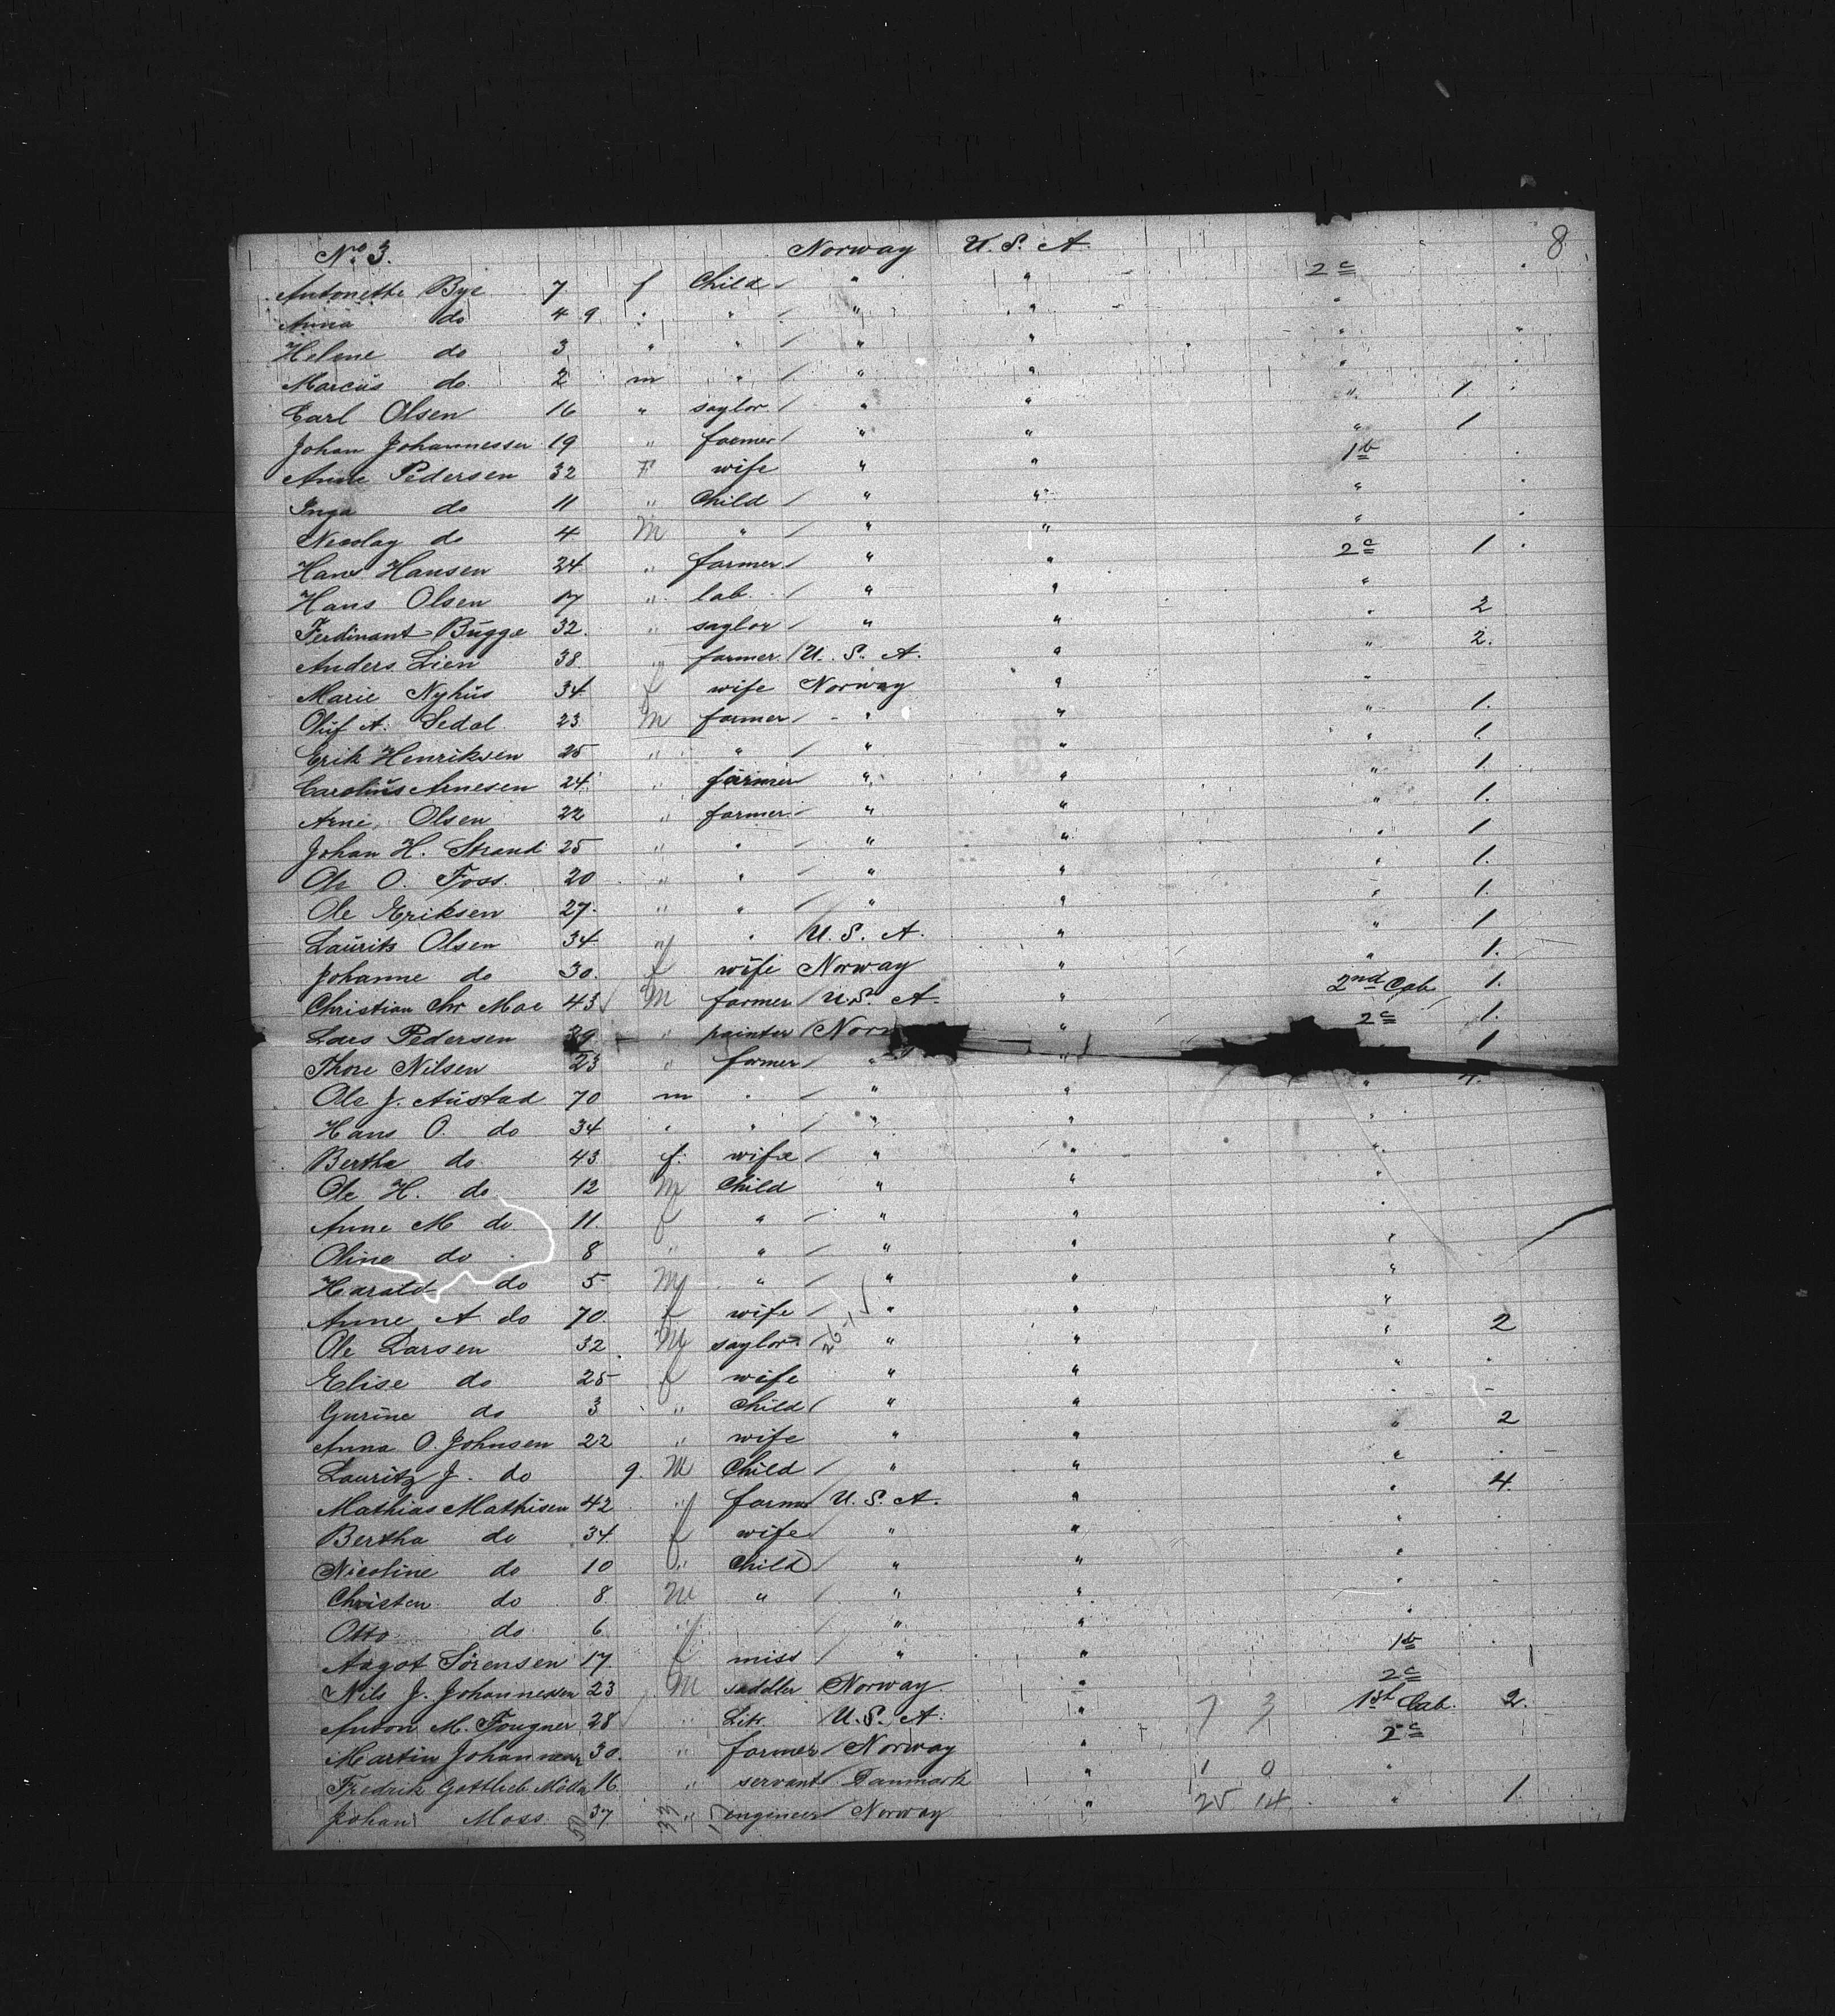 No. 3. Norway U. S. A. 8
Antonette Bye 7 f Child / " " 2c
Anna do 4 9 " " / " " "
Helene do 3 " " / " " "
Marcus do 2 m " / " " "
Carl Olsen 16 " saylor / " " " 1.
Johan Johannessen 19 " farmer / " " " 1
Anne Pedersen 32 F wife " " 1b
Inga do 11 " Child / " " "
Nicolay do 4 M " / " " "
Hans Hansen 24. " farmer / " " 2c 1.
Hans Olsen 17 " lab. / " " "
Ferdinant Bugge 32. " saylor / " " " 2
Anders Lien 38 " farmer / U. S. A. " " 2.
Marie Nyhus 34 f wife Norway " "
Oluf A. Sedal 23 M farmer / " " " 1.
Erik Henriksen 25 " " / " " " 1.
Carolius Arnesen 24. " farmer " " " 1.
Arne Olsen 22 " farmer / " " " 1.
Johan H. Strand 25 " " / " " " 1
Ole O. Foss. 20 " " / " " " 1.
Ole Eriksen 27. " " / " " " 1.
Laurits Olsen 34 " " / U. S. A. " " 1
Johanne do 30. f wife Norway " " 1.
Christian Chr Moe 43 M farmer / U. S. A. " 2nd Cab 1.
Lars Pedersen 39 " painter / Nor " 2c 1.
Thore Nilsen 23 " farmer / " " 1
Ole J. Austad 70 m " / " " " 4.
Hans O. do 34 " " / " " "
Bertha do 43 f. wife / " " "
Ole H. do 12 M Child " " "
Anne M do 11. f " / " " "
Oline do 8 " " / " " "
Harald do 5 M " / " " "
Anne A do 70. f wife / " " "
Ole Larsen 32 M saylor / 26-15 " " " 2
Elise do 25 f wife " " "
Gurine do 3 " Child / " " "
Anna O. Johnsen 22 " wife " " " 2
Lauritz J. do 9. M Child / " " "
Mathias Mathisen 42 " farmer / U. S. A. " " 4.
Bertha do 34. f wife / " " "
Nicoline do 10 " Child / " " "
Christen do 8 M " / " " "
Otto do 6 " / " " "
Aagot Sörensen 17 f miss / " " 1b
Nils J. Johannessen 23 M saddler / Norway " 2c
Anton M. Fougner 28 " / U. S. A. " 7 3 1st Cab. 2.
Martin Johannesen 30. " farmer / Norway " 2c
Fredrik Gottlieb 16 " servant / Danmark " 1 0 "
Johan Moss 37 " engeneer / Norway " 25 14 " 1.
50 33 17